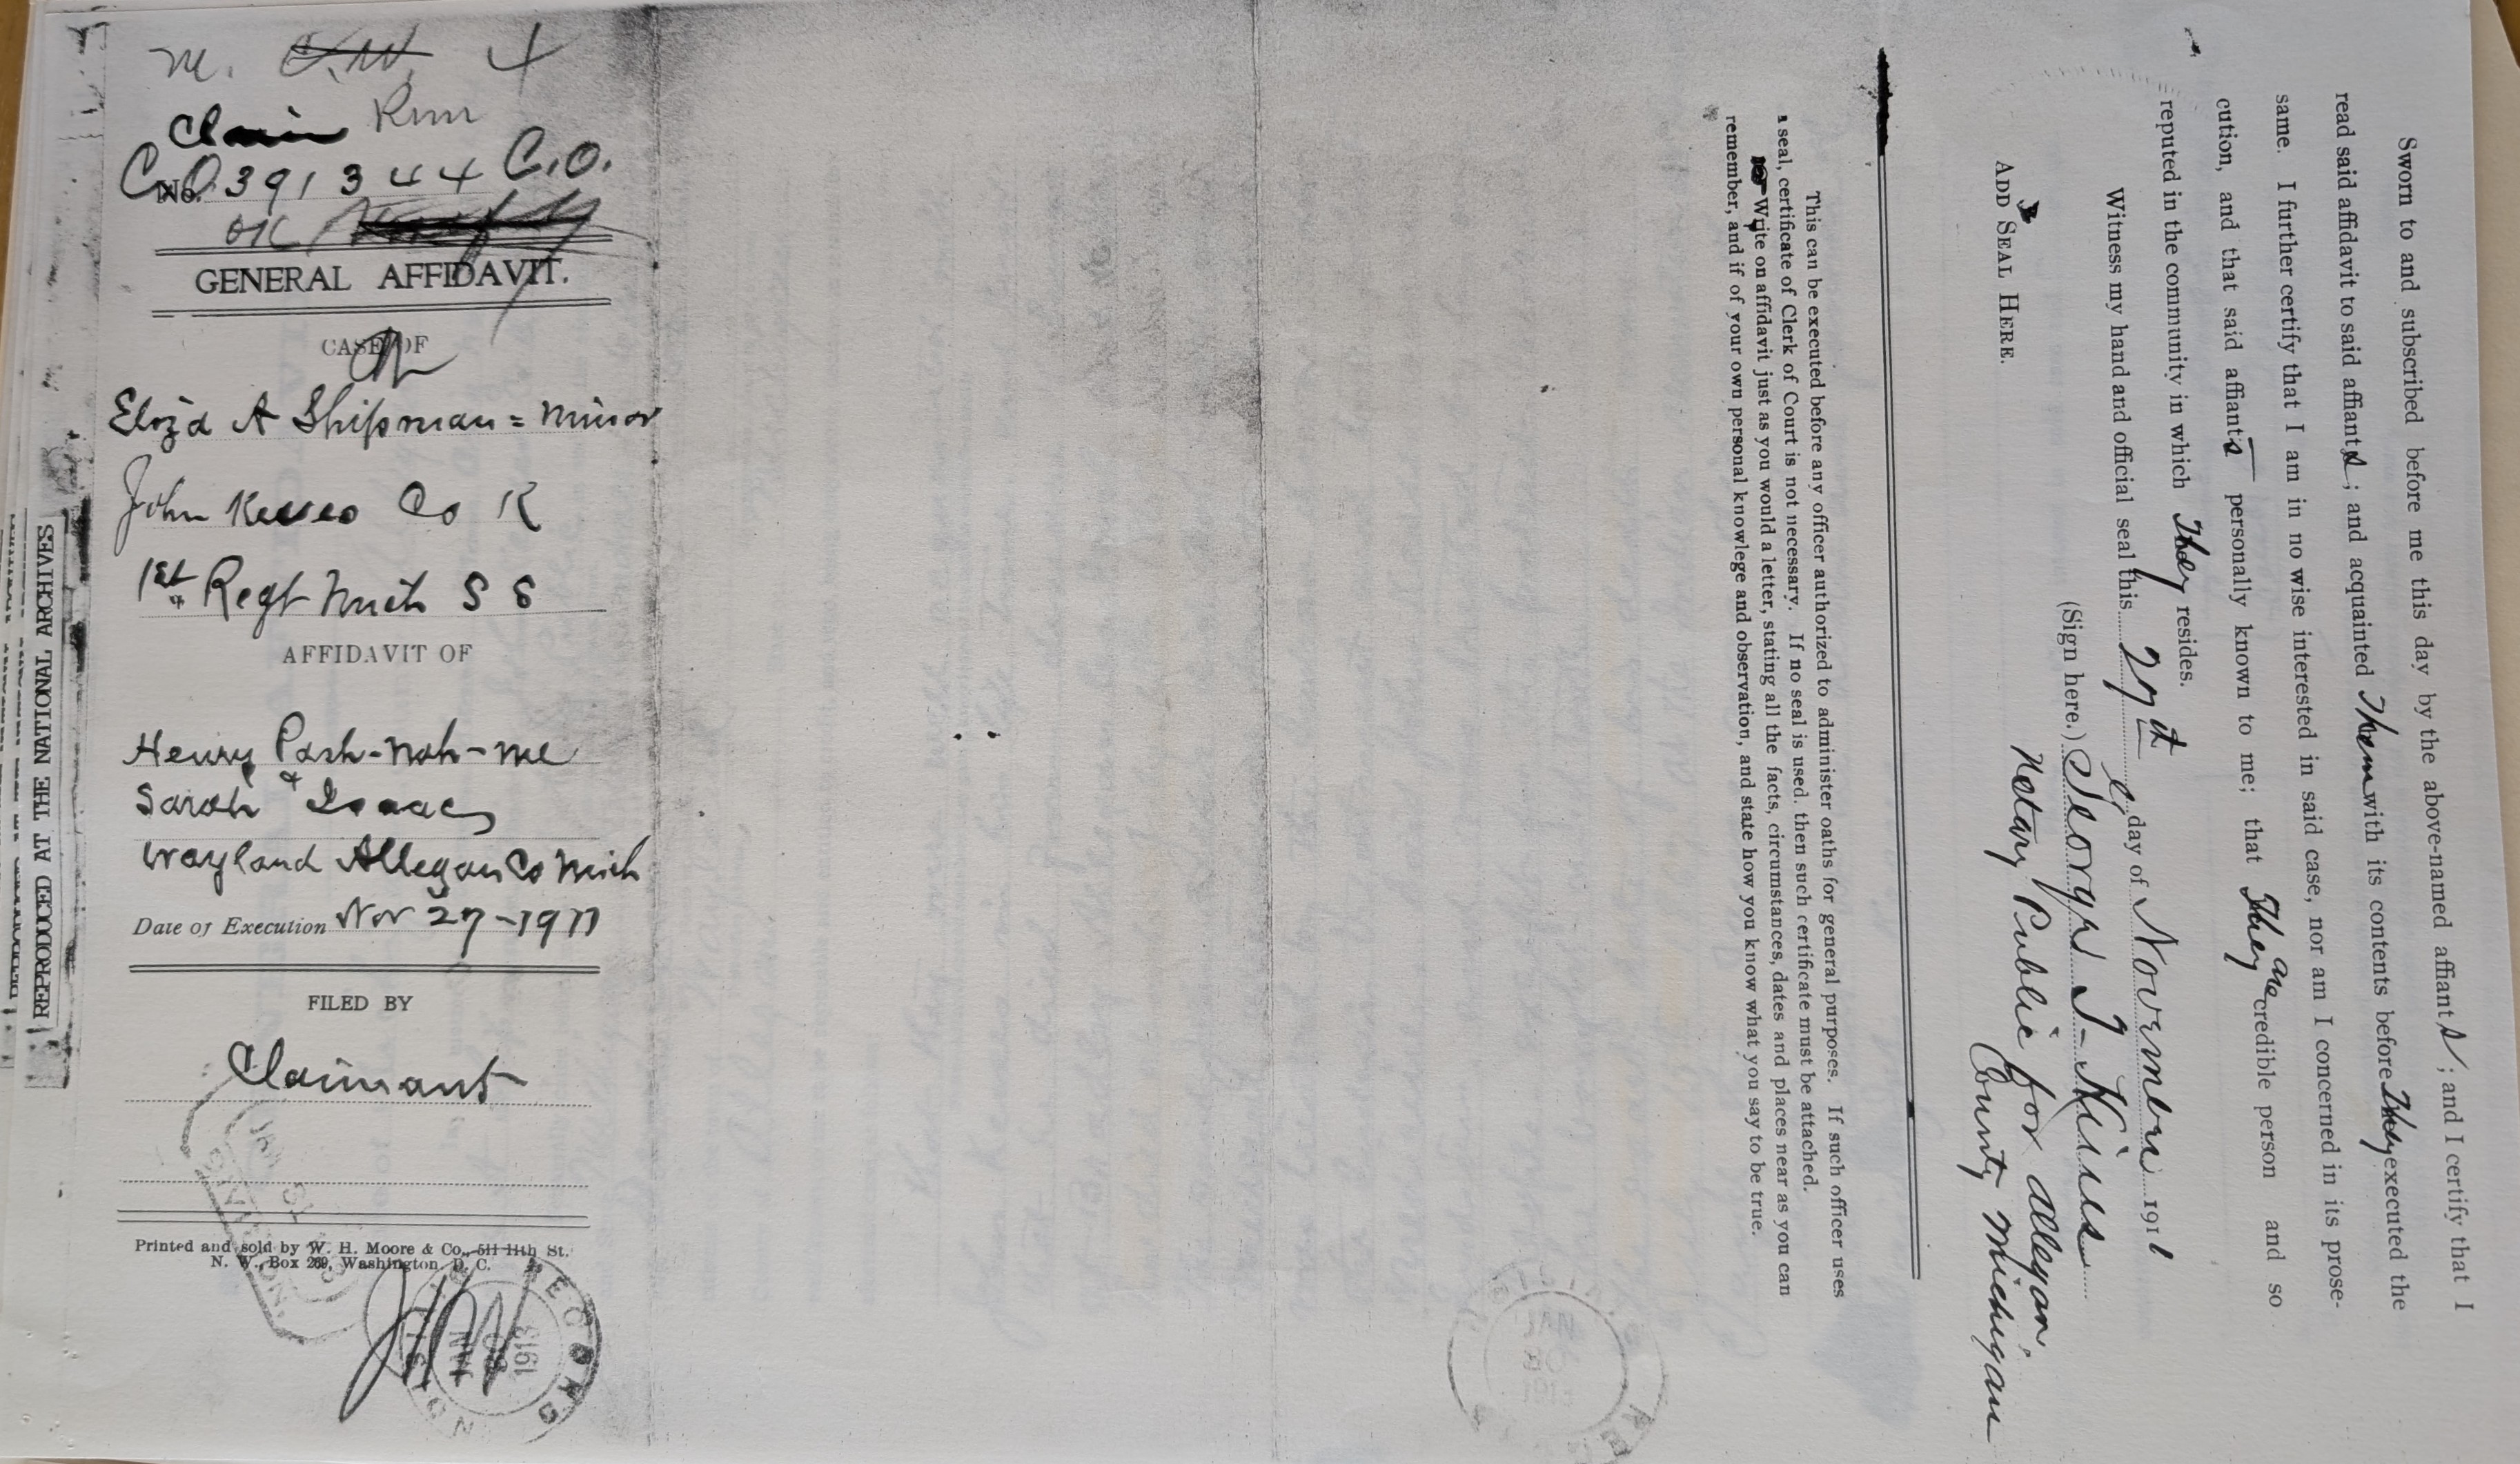 m. C.W. 4
Claim Rim
C.O No. 391344 C.O.
OK
GENERAL AFFIDAVIT.
CASE OF
Eliza A Shipman = minor
John Kesseo Co K
1st Regt Mich S S
AFFIDAVIT OF
Henry Pash-nah-me
&
Sarah Isaac
Wayland Allegan Co Mich
Date of Execution Nov 27-1911
FILED BY
Claimant
Printed and sold by W. H. Moore & Co., 511 11th St.
N. W., Box 269, Washington, D. C.
RECORDS
JAN
20
1913
DIVISION
REPRODUCED AT THE NATIONAL ARCHIVES
Sworn to and subscribed before me this day by the above-named affiants; and I certify that I
read said affidavit to said affiants; and acquainted them with its contents before they executed the
same. I further certify that I am in no wise interested in said case, nor am I concerned in its prose-
cution, and that said affiants personally known to me; that they are credible person and so
reputed in the community in which they resides.
Witness my hand and official seal this 27th day of November 1911
(Sign here.) George I-Kius
ADD SEAL HERE.
Notary Public for allegan
County Michigan
This can be executed before any officer authorized to administer oaths for general purposes. If such officer uses
a seal, certificate of Clerk of Court is not necessary. If no seal is used, then such certificate must be attached.
Write on affidavit just as you would a letter, stating all the facts, circumstances, dates and places near as you can
remember, and if of your own personal knowlege and observation, and state how you know what you say to be true.
JAN
20
1913